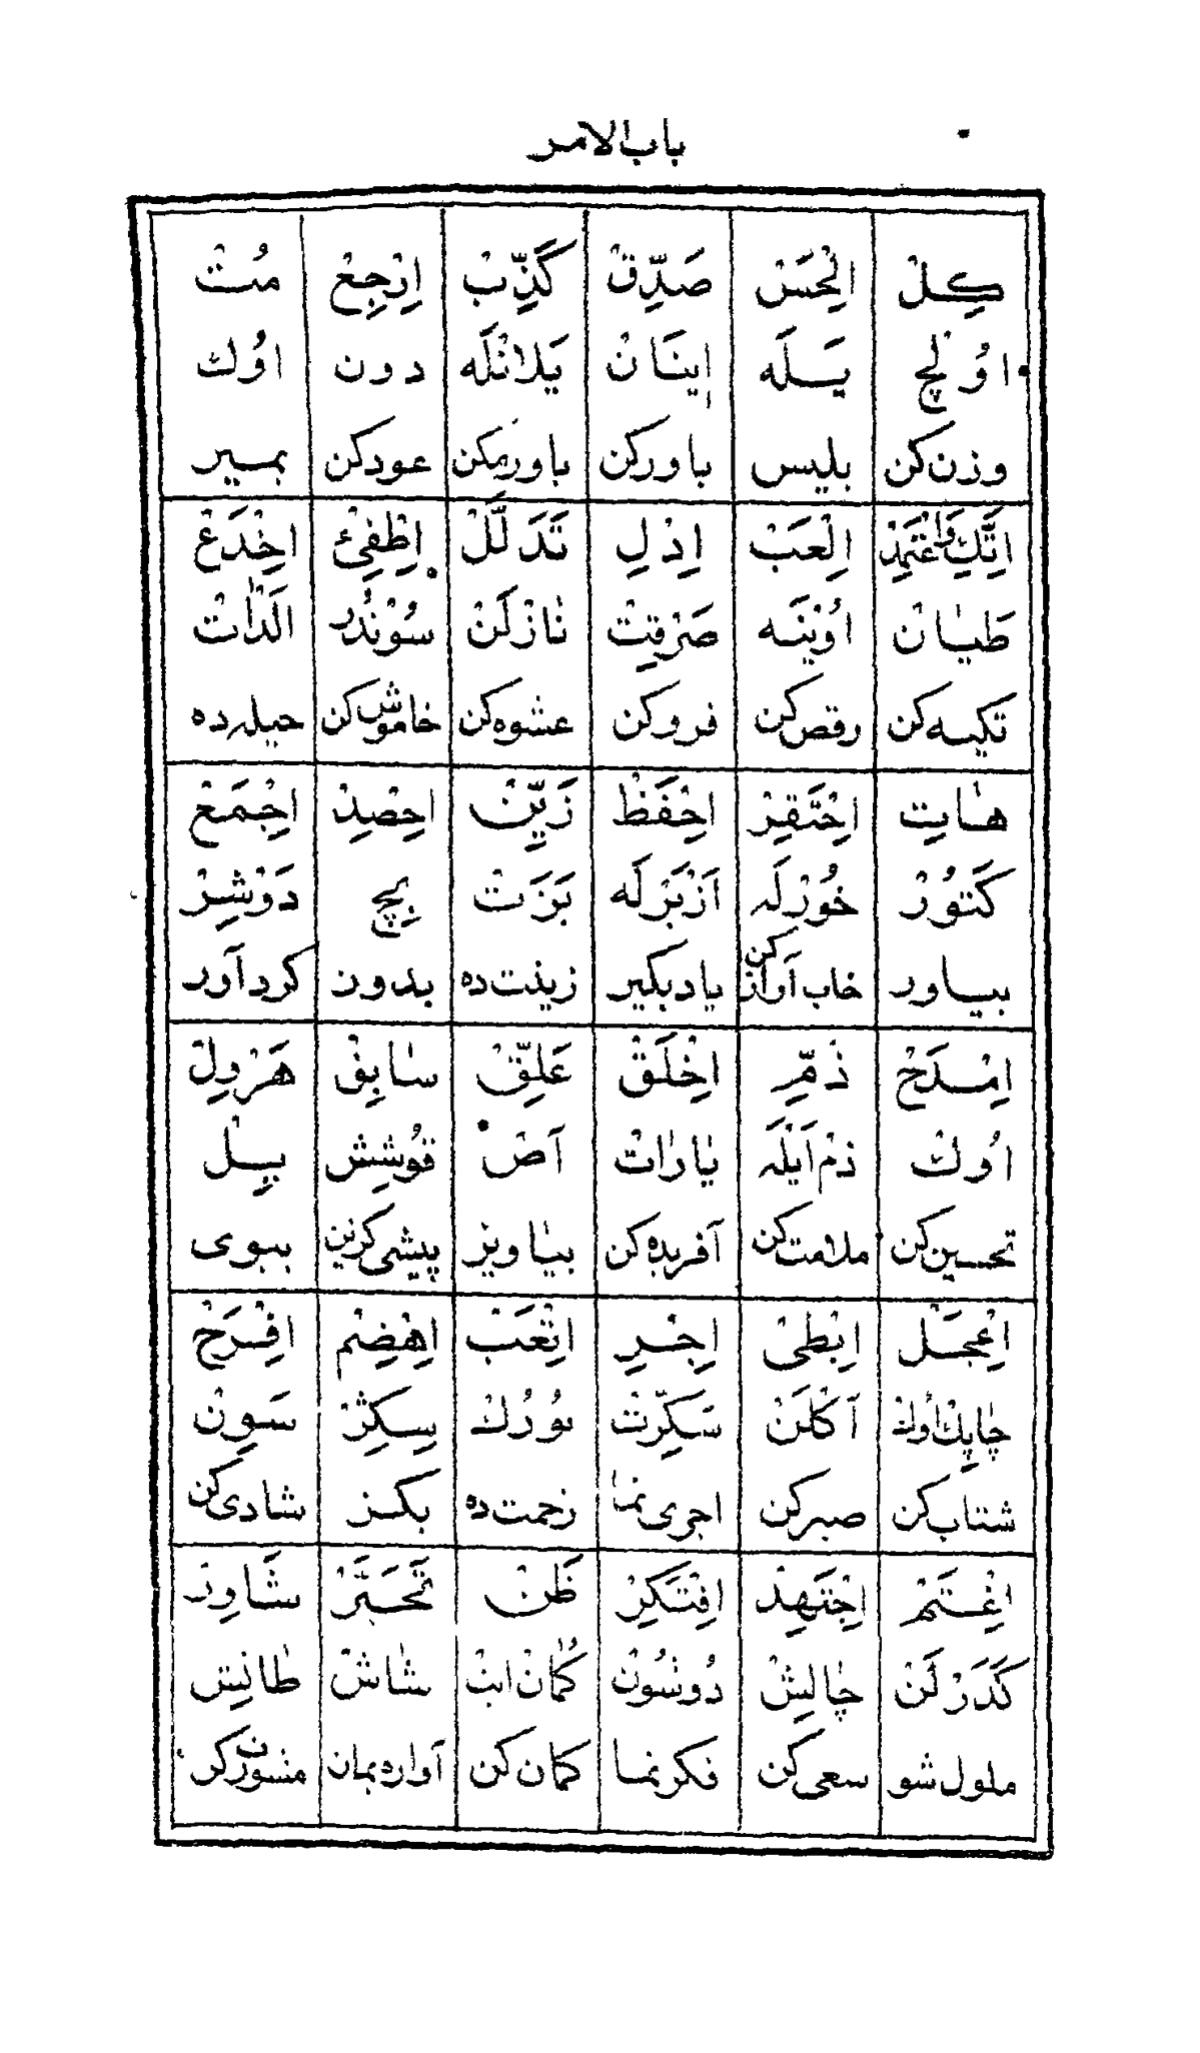 باب الامر
كِلْ اِلْحَسْ صَدِّقْ كَذِّبْ اِرْجِعْ مُتْ
اوُلْچ يَـلَه اِينَانْ يَلَانْلَه دون اوُك
وزن كن بليس باور كن باور مكن عود كن بمـير
اِتَّكِ وَاعْتَمِدْ اِلْعَبْ اِدْلِ تَدَلَّلْ اِطْفِئْ اِخْدَعْ
طَيَانْ اوُيْنَه صَرْقِتْ نَازْلَنْ سُوْنْدُر الَدَاتْ
تكيـه كن رقص كن فرو كن عشوه كن خاموش كن حيله ده
هَاتِ اِحْتَقِرْ اِحْفَظْ زَيِّنْ اِحْصِدْ اِجْمَعْ
كَتوُرْ خُوْرْلَه اَزْبَرْلَه بَزَتْ بِچ دَوْشِرْ
بيـاور خاب آواز كن ياد بكير زينت ده بدون كرد آور
اِمْدَحْ ذُمِّ اِخْلَقْ عَلِّقْ سَابِقْ هَرْوِلْ
اوُكْ ذمْ اَيْلَه يَارَاتْ آصْ قوُشِش يـيـل
تحسين كن ملامت كن آفريده كن بيَاويز پيشى كزين ببوى
اِعْجَـلْ اِبْطِىْ اِجْـرِ اِتْعَبْ اِهْضِمْ اِفْـرَحْ
چَاپِكْ اوُلْ اَكْلَنْ سَكِّرْتْ يوُرُلْ سِكِرْ سَوِنْ
شتاب كن صبر كن اجرى نما زحمت ده بكـز شادى كن
اِغْـتَمْ اِجْتَهِدْ اِفْتَكِرْ ظَنْ تَحَـيَّرْ شَاوِر
كَدَرْلَنْ چَالِشْ دُوشُونْ كُمَانْ ات شَاشْ طَانِش
ملول شو سعى كن فكر نمـا كمان كن آواره بمان مشورت كن